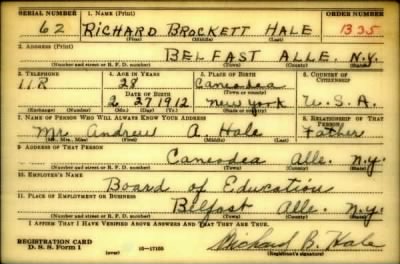 SERIAL NUMBER 1. NAME (Print) ORDER NUMBER
62 RICHARD BROCKETT HALE 1335
(First) (Middle) (Last)
2. ADDRESS (Print)
BELFAST ALLE. N.Y.
(Number and street or R. F. D. number) (Town) (County) (State)
3. TELEPHONE 4. AGE IN YEARS 5. PLACE OF BIRTH 6. COUNTRY OF CITIZENSHIP
11R 28 Caneadea
DATE OF BIRTH (Town or county)
2 27 1912 New York U.S.A.
(Exchange) (Number) (Mo.) (Day) (Yr.) (State or country)
7. NAME OF PERSON WHO WILL ALWAYS KNOW YOUR ADDRESS 8. RELATIONSHIP OF THAT PERSON
Mr. Andrew A. Hale Father
(Mr., Mrs., Miss) (First) (Middle) (Last)
9. ADDRESS OF THAT PERSON
Caneadea Alle. N.Y.
(Number and street or R. F. D. number) (Town) (County) (State)
10. EMPLOYER'S NAME
Board of Education
11. PLACE OF EMPLOYMENT OR BUSINESS
Belfast Alle. N.Y.
(Number and street or R. F. D. number) (Town) (County) (State)
I AFFIRM THAT I HAVE VERIFIED ABOVE ANSWERS AND THAT THEY ARE TRUE.
REGISTRATION CARD
D. S. S. Form 1 16—17105 Richard B. Hale
(Registrant's signature)